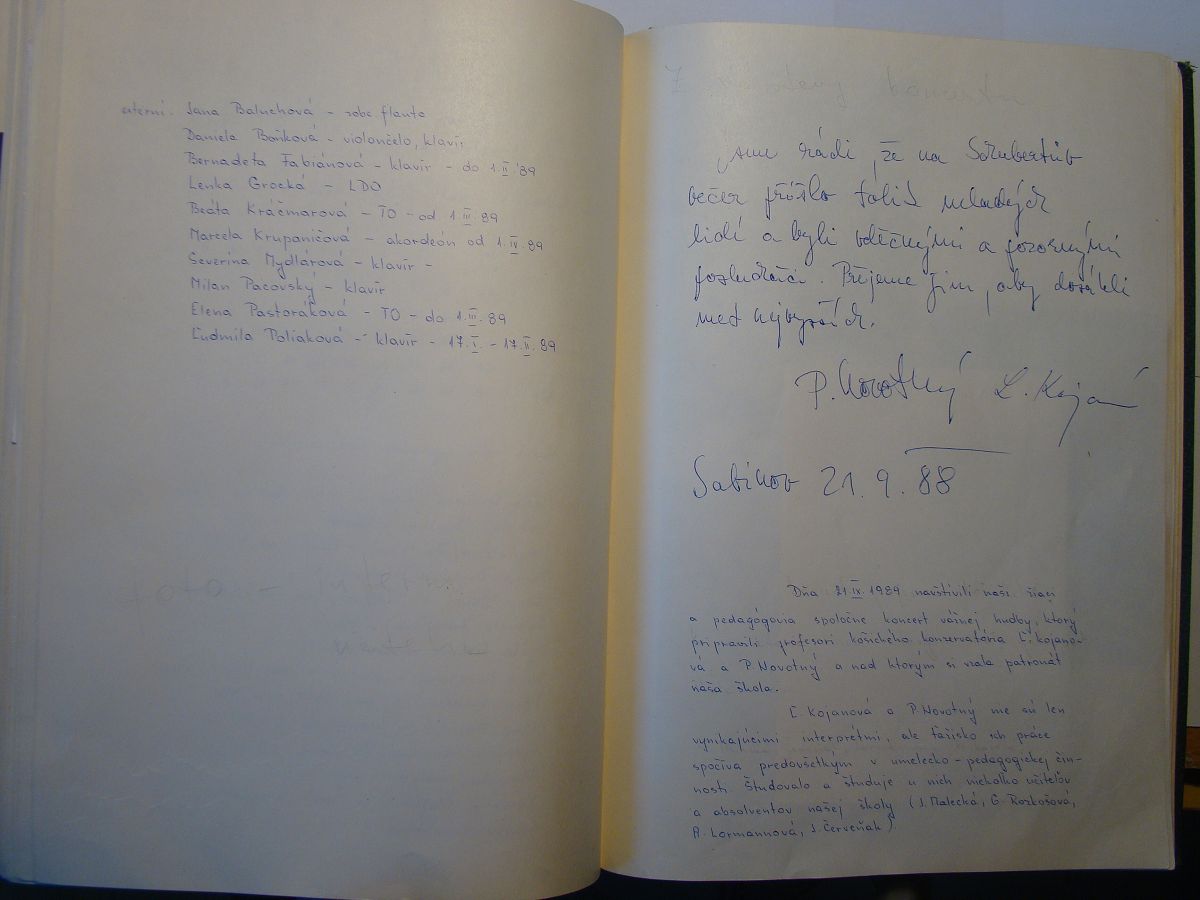 externí: Jana Baluchová - zobc. flauta
Daniela Boňková - violončelo, klavír
Bernadeta Fabiánová - klavír - do 1.II.'89
Lenka Grocká - LDO
Beáta Kráčmarová - TO - od 1.III.89
Marcela Krupaničová - akordeón od 1.IV.89
Severína Mydlárová - klavír -
Milan Pacovský - klavír
Elena Pastoráková - TO - do 1.III.89
Ľudmila Poliaková - klavír - 17.I. - 17.II.89
koncertu
Jsme rádi, že na Schubertův
večer přišlo tolik mladých
lidí a byli vděčnými a pozornými
posluchači. Přejeme jim, aby dosáhli
met nejvyšších.
P. Novotný L. Kojanová
Sabinov 21.9.88
Dňa 21.IX.1989 navštívili naši žiaci
a pedagógovia spoločne koncert vážnej hudby, ktorý
pripravili profesori košického konzervatória Ľ. Kojano-
vá a P. Novotný a nad ktorým si vzala patronát
naša škola.
Ľ. Kojanová a P. Novotný nie sú len
vynikajúcimi interprétmi, ale ťažisko ich práce
spočíva predovšetkým v umelecko-pedagogickej čin-
nosti. Študovalo a študuje u nich niekoľko učiteľov
a absolventov našej školy (J. Malecká, G. Rozkošová,
A. Lormannová, J. Červeňak).